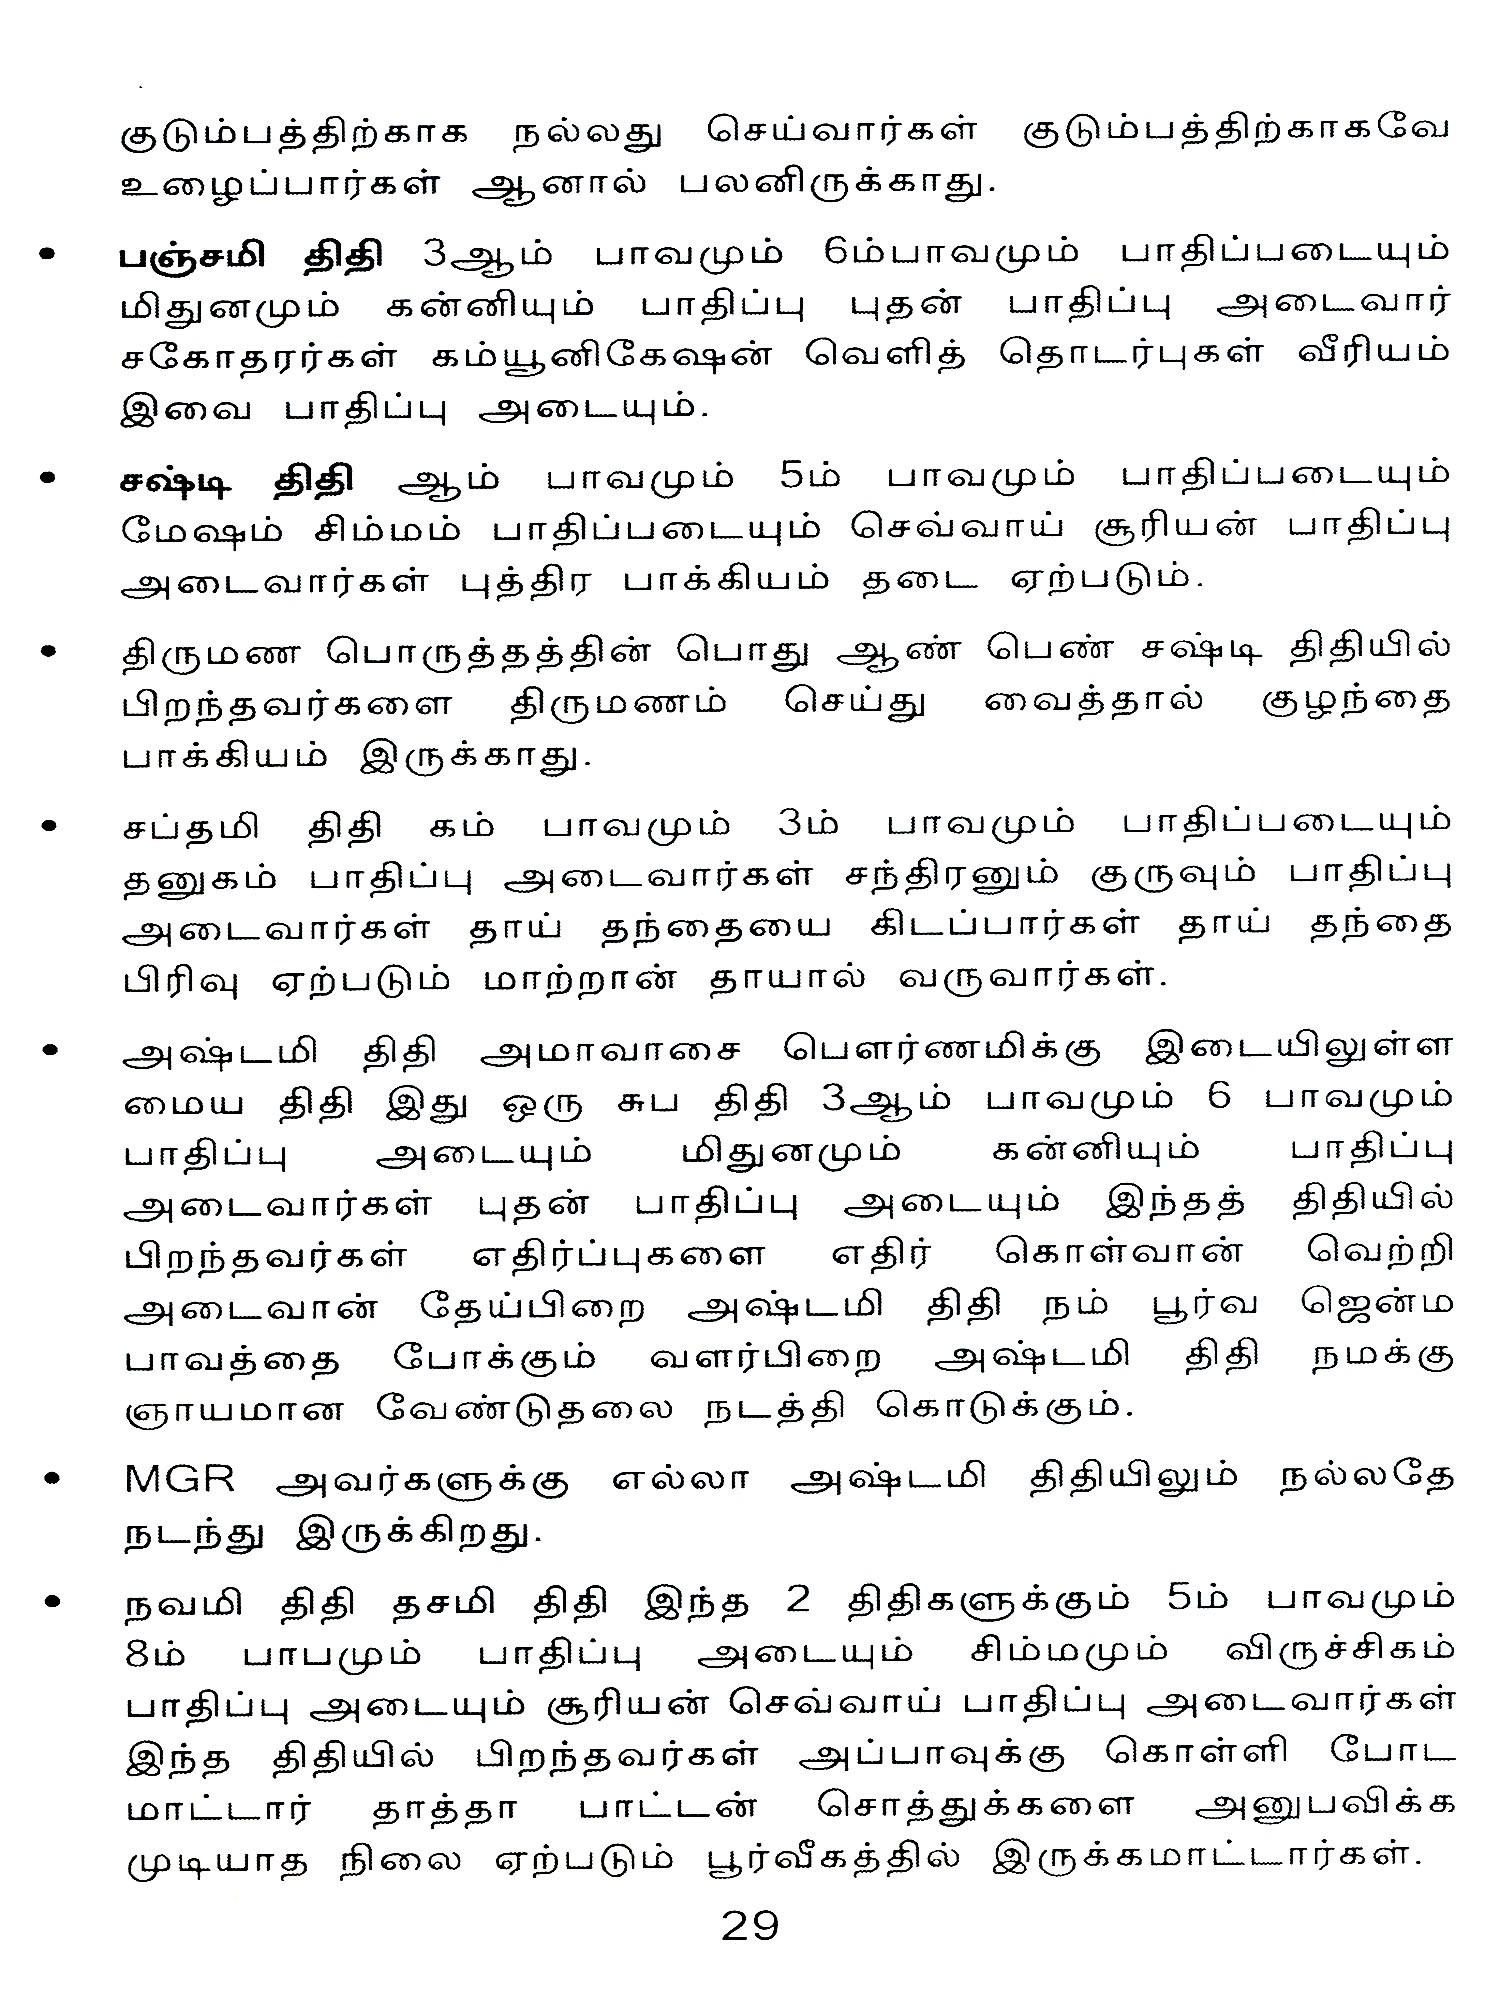 குடும்பத்திற்காக நல்லது செய்வார்கள் குடும்பத்திற்காகவே
உழைப்பார்கள் ஆனால் பலனிருக்காது.
• பஞ்சமி திதி 3ஆம் பாவமும் 6ம்பாவமும் பாதிப்படையும்
மிதுனமும் கன்னியும் பாதிப்பு புதன் பாதிப்பு அடைவார்
சகோதரர்கள் கம்யூனிகேஷன் வெளித் தொடர்புகள் வீரியம்
இவை பாதிப்பு அடையும்.
• சஷ்டி திதி ஆம் பாவமும் 5ம் பாவமும் பாதிப்படையும்
மேஷம் சிம்மம் பாதிப்படையும் செவ்வாய் சூரியன் பாதிப்பு
அடைவார்கள் புத்திர பாக்கியம் தடை ஏற்படும்.
• திருமண பொருத்தத்தின் பொது ஆண் பெண் சஷ்டி திதியில்
பிறந்தவர்களை திருமணம் செய்து வைத்தால் குழந்தை
பாக்கியம் இருக்காது.
• சப்தமி திதி கம் பாவமும் 3ம் பாவமும் பாதிப்படையும்
தனுகம் பாதிப்பு அடைவார்கள் சந்திரனும் குருவும் பாதிப்பு
அடைவார்கள் தாய் தந்தையை கிடப்பார்கள் தாய் தந்தை
பிரிவு ஏற்படும் மாற்றான் தாயால் வருவார்கள்.
• அஷ்டமி திதி அமாவாசை பௌர்ணமிக்கு இடையிலுள்ள
மைய திதி இது ஒரு சுப திதி 3ஆம் பாவமும் 6 பாவமும்
பாதிப்பு அடையும் மிதுனமும் கன்னியும் பாதிப்பு
அடைவார்கள் புதன் பாதிப்பு அடையும் இந்தத் திதியில்
பிறந்தவர்கள் எதிர்ப்புகளை எதிர் கொள்வான் வெற்றி
அடைவான் தேய்பிறை அஷ்டமி திதி நம் பூர்வ ஜென்ம
பாவத்தை போக்கும் வளர்பிறை அஷ்டமி திதி நமக்கு
ஞாயமான வேண்டுதலை நடத்தி கொடுக்கும்.
• MGR அவர்களுக்கு எல்லா அஷ்டமி திதியிலும் நல்லதே
நடந்து இருக்கிறது.
• நவமி திதி தசமி திதி இந்த 2 திதிகளுக்கும் 5ம் பாவமும்
8ம் பாபமும் பாதிப்பு அடையும் சிம்மமும் விருச்சிகம்
பாதிப்பு அடையும் சூரியன் செவ்வாய் பாதிப்பு அடைவார்கள்
இந்த திதியில் பிறந்தவர்கள் அப்பாவுக்கு கொள்ளி போட
மாட்டார் தாத்தா பாட்டன் சொத்துக்களை அனுபவிக்க
முடியாத நிலை ஏற்படும் பூர்வீகத்தில் இருக்கமாட்டார்கள்.
29